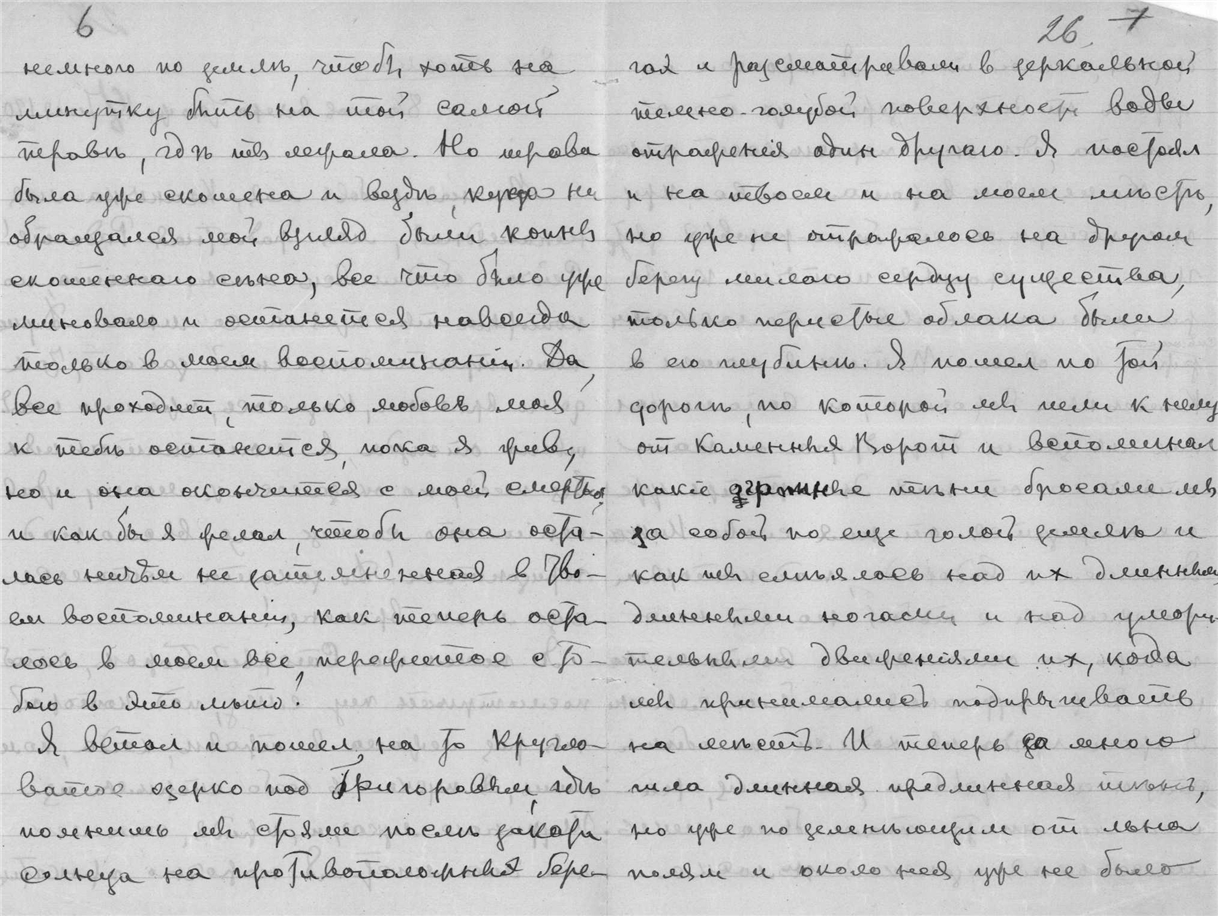 6
немного по землѣ, чтобы хоть на
минутку быть на той самой
травѣ, гдѣ ты лежала. Но трава
была уже скошена и вездѣ, куда ни
обращался мой взгляд были копны
скошеннаго сѣна, все что было уже
миновало и останется навсегда
только в моем воспоминаніи. Да,
все проходит, только любовь моя
к тебѣ останется, пока я живу,
но и она окончится с моей смертью,
и как бы я желал, чтобы она оста-
лась ничѣм не затемненная в тво-
ем воспоминаніи, как теперь оста-
лось в моем все пережитое с то-
бою в это лѣто!
Я встал и пошел на то кругло-
ватое озерко под Григоровым, гдѣ
помнишь мы стояли послѣ заката
солнца на противоположныя бере-
26 7
гах и разсматривали в зеркальной
темно-голубой поверхности воды
отраженія один другаго. Я постоял
и на твоем и на моем мѣстѣ,
но уже не отражалось на другом
берегу милаго сердцу существа,
только перистые облака были
в его глубинѣ. Я пошел по той
дорогѣ, по которой мы шли к нему
от Каменныя Ворот и вспоминал
какіе огромные тѣни бросали мы
за собой по еще голой землѣ и
как ты смѣялось над их длинными,
длинными ногами и над умори-
тельными движеніями их, когда
мы принимались подпрыгивать
на мѣстѣ. И теперь за мною
шла длинная предлинная тѣнь,
но уже по зеленѣющим от льна
полям и около нея уже не было